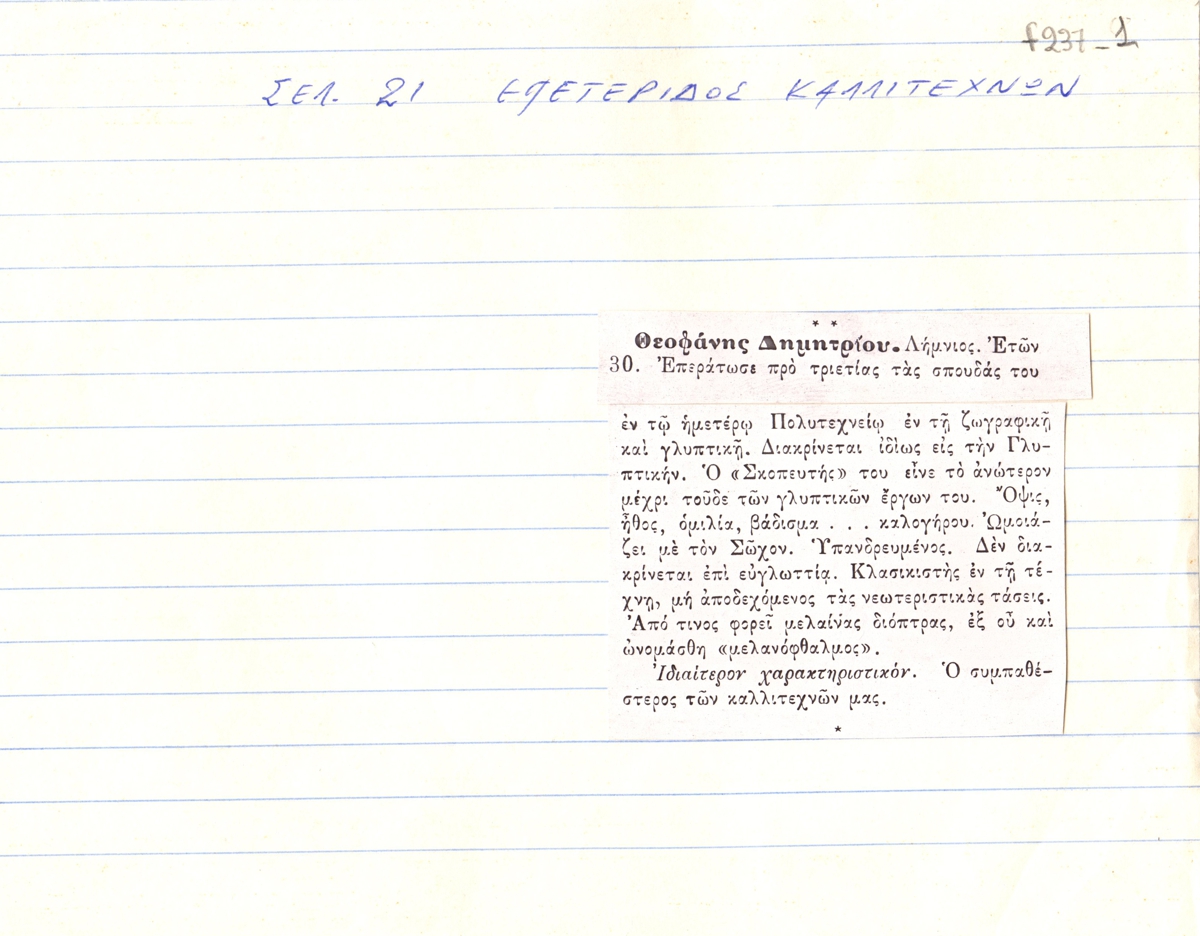 f237-1
ΣΕΛ. 21 ΕΠΕΤΕΡΙΔΟΣ ΚΑΛΛΙΤΕΧΝΩΝ
* *
Θεοφάνης Δημητρίου. Λήμνιος. Ἐτῶν
30. Ἐπεράτωσε πρὸ τριετίας τὰς σπουδάς του
ἐν τῷ ἡμετέρῳ Πολυτεχνείῳ ἐν τῇ ζωγραφικῇ
καὶ γλυπτικῇ. Διακρίνεται ἰδίως εἰς τὴν Γλυ-
πτικήν. Ὁ «Σκοπευτής» του εἶνε τὸ ἀνώτερον
μέχρι τοῦδε τῶν γλυπτικῶν ἔργων του. Ὄψις,
ἦθος, ὁμιλία, βάδισμα . . . καλογήρου. Ὡμοιά-
ζει μὲ τὸν Σῶχον. Ὑπανδρευμένος. Δὲν δια-
κρίνεται ἐπὶ εὐγλωττίᾳ. Κλασικιστὴς ἐν τῇ τέ-
χνῃ, μή ἀποδεχόμενος τὰς νεωτεριστικὰς τάσεις.
Ἀπό τινος φορεῖ μελαίνας διόπτρας, ἐξ οὗ καὶ
ὠνομάσθη «μελανόφθαλμος».
Ἰδιαίτερον χαρακτηριστικόν. Ὁ συμπαθέ-
στερος τῶν καλλιτεχνῶν μας.
*